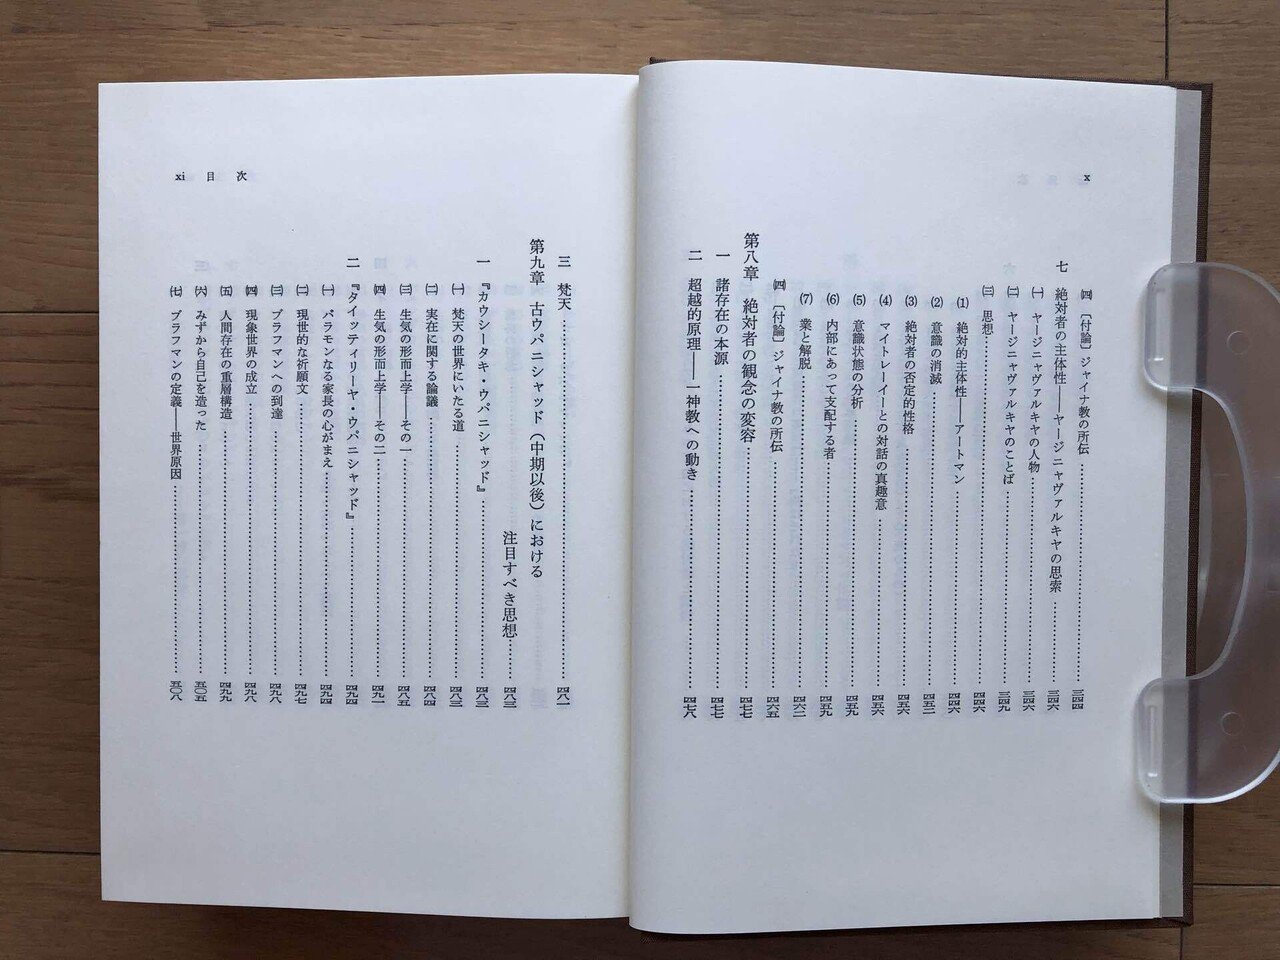 x
㈣ 〔付論〕ジャイナ教の所伝……三四四
七 絶対者の主体性——ヤージニャヴァルキヤの思索……三四六
㈠ ヤージニャヴァルキヤの人物……三四六
㈡ ヤージニャヴァルキヤのことば……三四九
㈢ 思想……四四六
⑴ 絶対的主体性——アートマン……四四六
⑵ 意識の消滅……四五二
⑶ 絶対者の否定的性格……四五六
⑷ マイトレーイーとの対話の真趣意……四五六
⑸ 意識状態の分析……四五九
⑹ 内部にあって支配する者……四五九
⑺ 業と解脱……四六二
㈣ 〔付論〕ジャイナ教の所伝……四六五
第八章 絶対者の観念の変容……四七七
一 諸存在の本源……四七七
二 超越的原理——一神教への動き……四七八
xi 目次
三 梵天……四八一
第九章 古ウパニシャッド（中期以後）における
注目すべき思想……四八三
一 『カウシータキ・ウパニシャッド』……四八三
㈠ 梵天の世界にいたる道……四八三
㈡ 実在に関する論議……四八四
㈢ 生気の形而上学——その一……四八五
㈣ 生気の形而上学——その二……四九一
二 『タイッティリーヤ・ウパニシャッド』……四九四
㈠ バラモンなる家長の心がまえ……四九四
㈡ 現世的な祈願文……四九七
㈢ ブラフマンへの到達……四九八
㈣ 現象世界の成立……四九八
㈤ 人間存在の重層構造……四九九
㈥ みずから自己を造った……五〇五
㈦ ブラフマンの定義——世界原因……五〇八